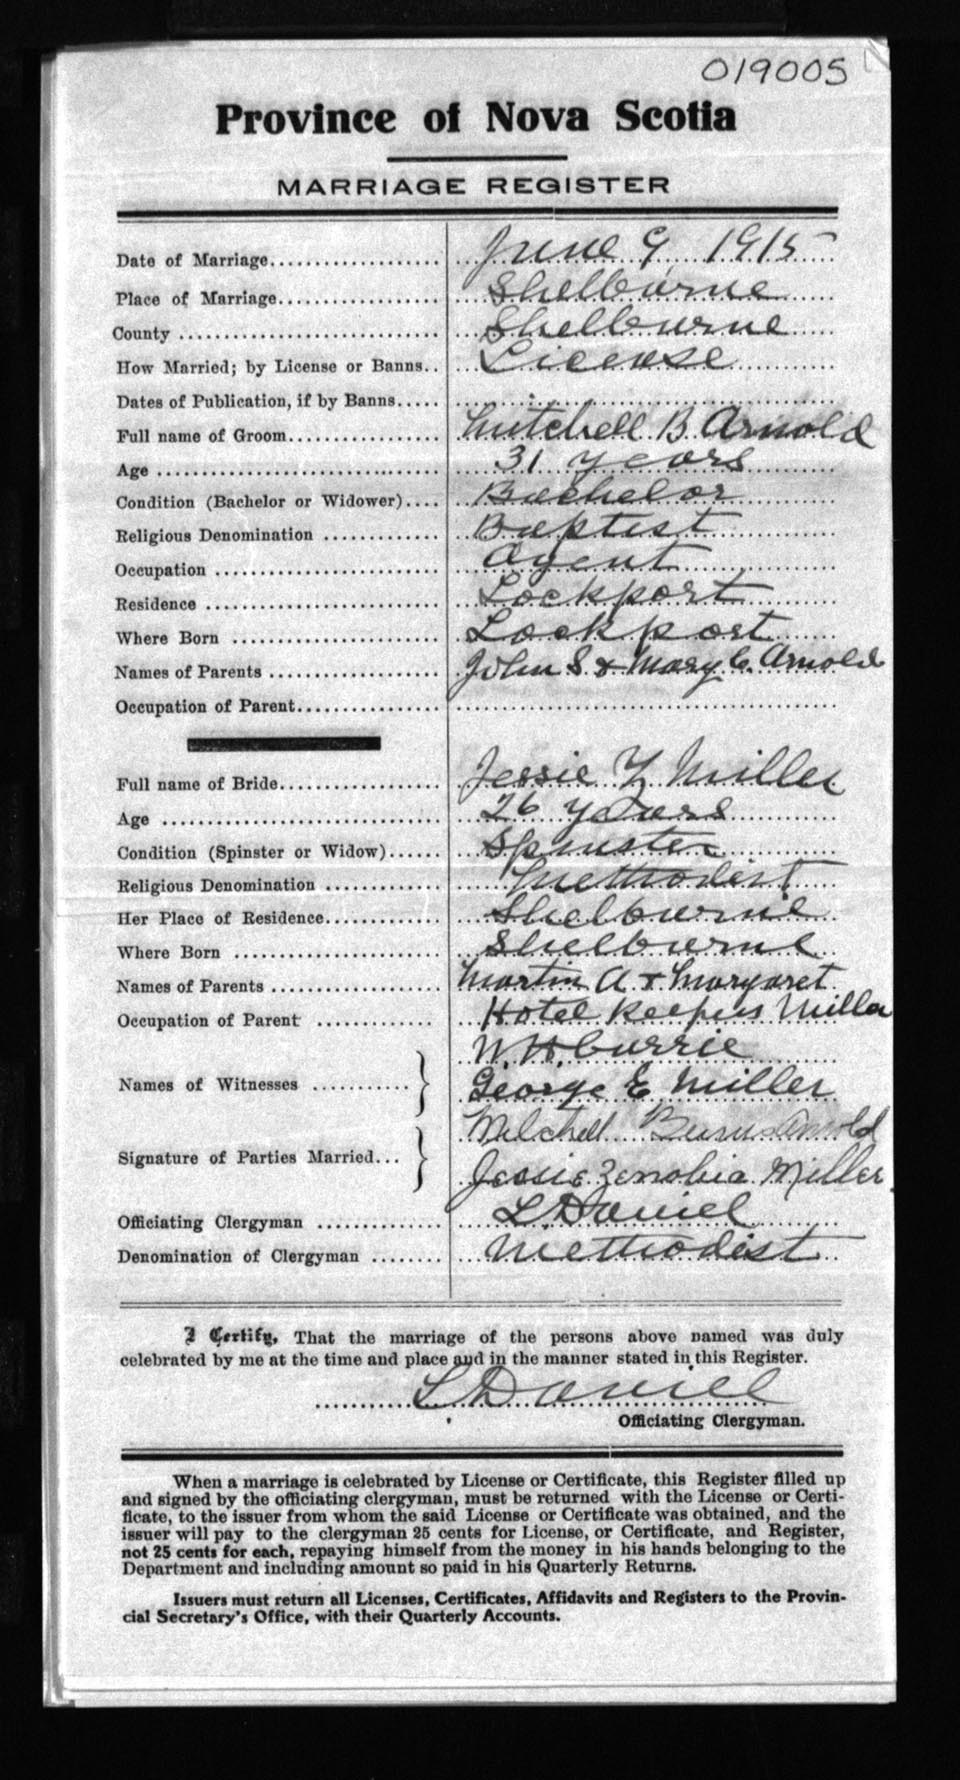 019005
Province of Nova Scotia
MARRIAGE REGISTER
Date of Marriage.................... June 9, 1915
Place of Marriage................... Shelburne
County ............................. Shelburne
How Married; by License or Banns.. License
Dates of Publication, if by Banns.....
Full name of Groom.................. Mitchell B. Arnold
Age ................................ 31 years
Condition (Bachelor or Widower).... Bachelor
Religious Denomination ............. Baptist
Occupation ......................... Agent
Residence .......................... Lockport
Where Born ......................... Lockport
Names of Parents ................... John S & Mary C. Arnold
Occupation of Parent................
Full name of Bride.................. Jessie Z Miller
Age ................................ 26 years
Condition (Spinster or Widow)...... Spinster
Religious Denomination ............. Methodist
Her Place of Residence............. Shelburne
Where Born ......................... Shelburne
Names of Parents ................... Martin A & Margaret
Occupation of Parent ............. Hotel Keepers Miller
W. H. Currie
Names of Witnesses ........... George E Miller
Mitchell Burns Arnold
Signature of Parties Married... Jessie Zenobia Miller
Officiating Clergyman .............. L. Daniel
Denomination of Clergyman ........ Methodist
I Certify, That the marriage of the persons above named was duly
celebrated by me at the time and place and in the manner stated in this Register.
L. Daniel
Officiating Clergyman.
When a marriage is celebrated by License or Certificate, this Register filled up
and signed by the officiating clergyman, must be returned with the License or Certi-
ficate, to the issuer from whom the said License or Certificate was obtained, and the
issuer will pay to the clergyman 25 cents for License, or Certificate, and Register,
not 25 cents for each, repaying himself from the money in his hands belonging to the
Department and including amount so paid in his Quarterly Returns.
Issuers must return all Licenses, Certificates, Affidavits and Registers to the Provin-
cial Secretary's Office, with their Quarterly Accounts.